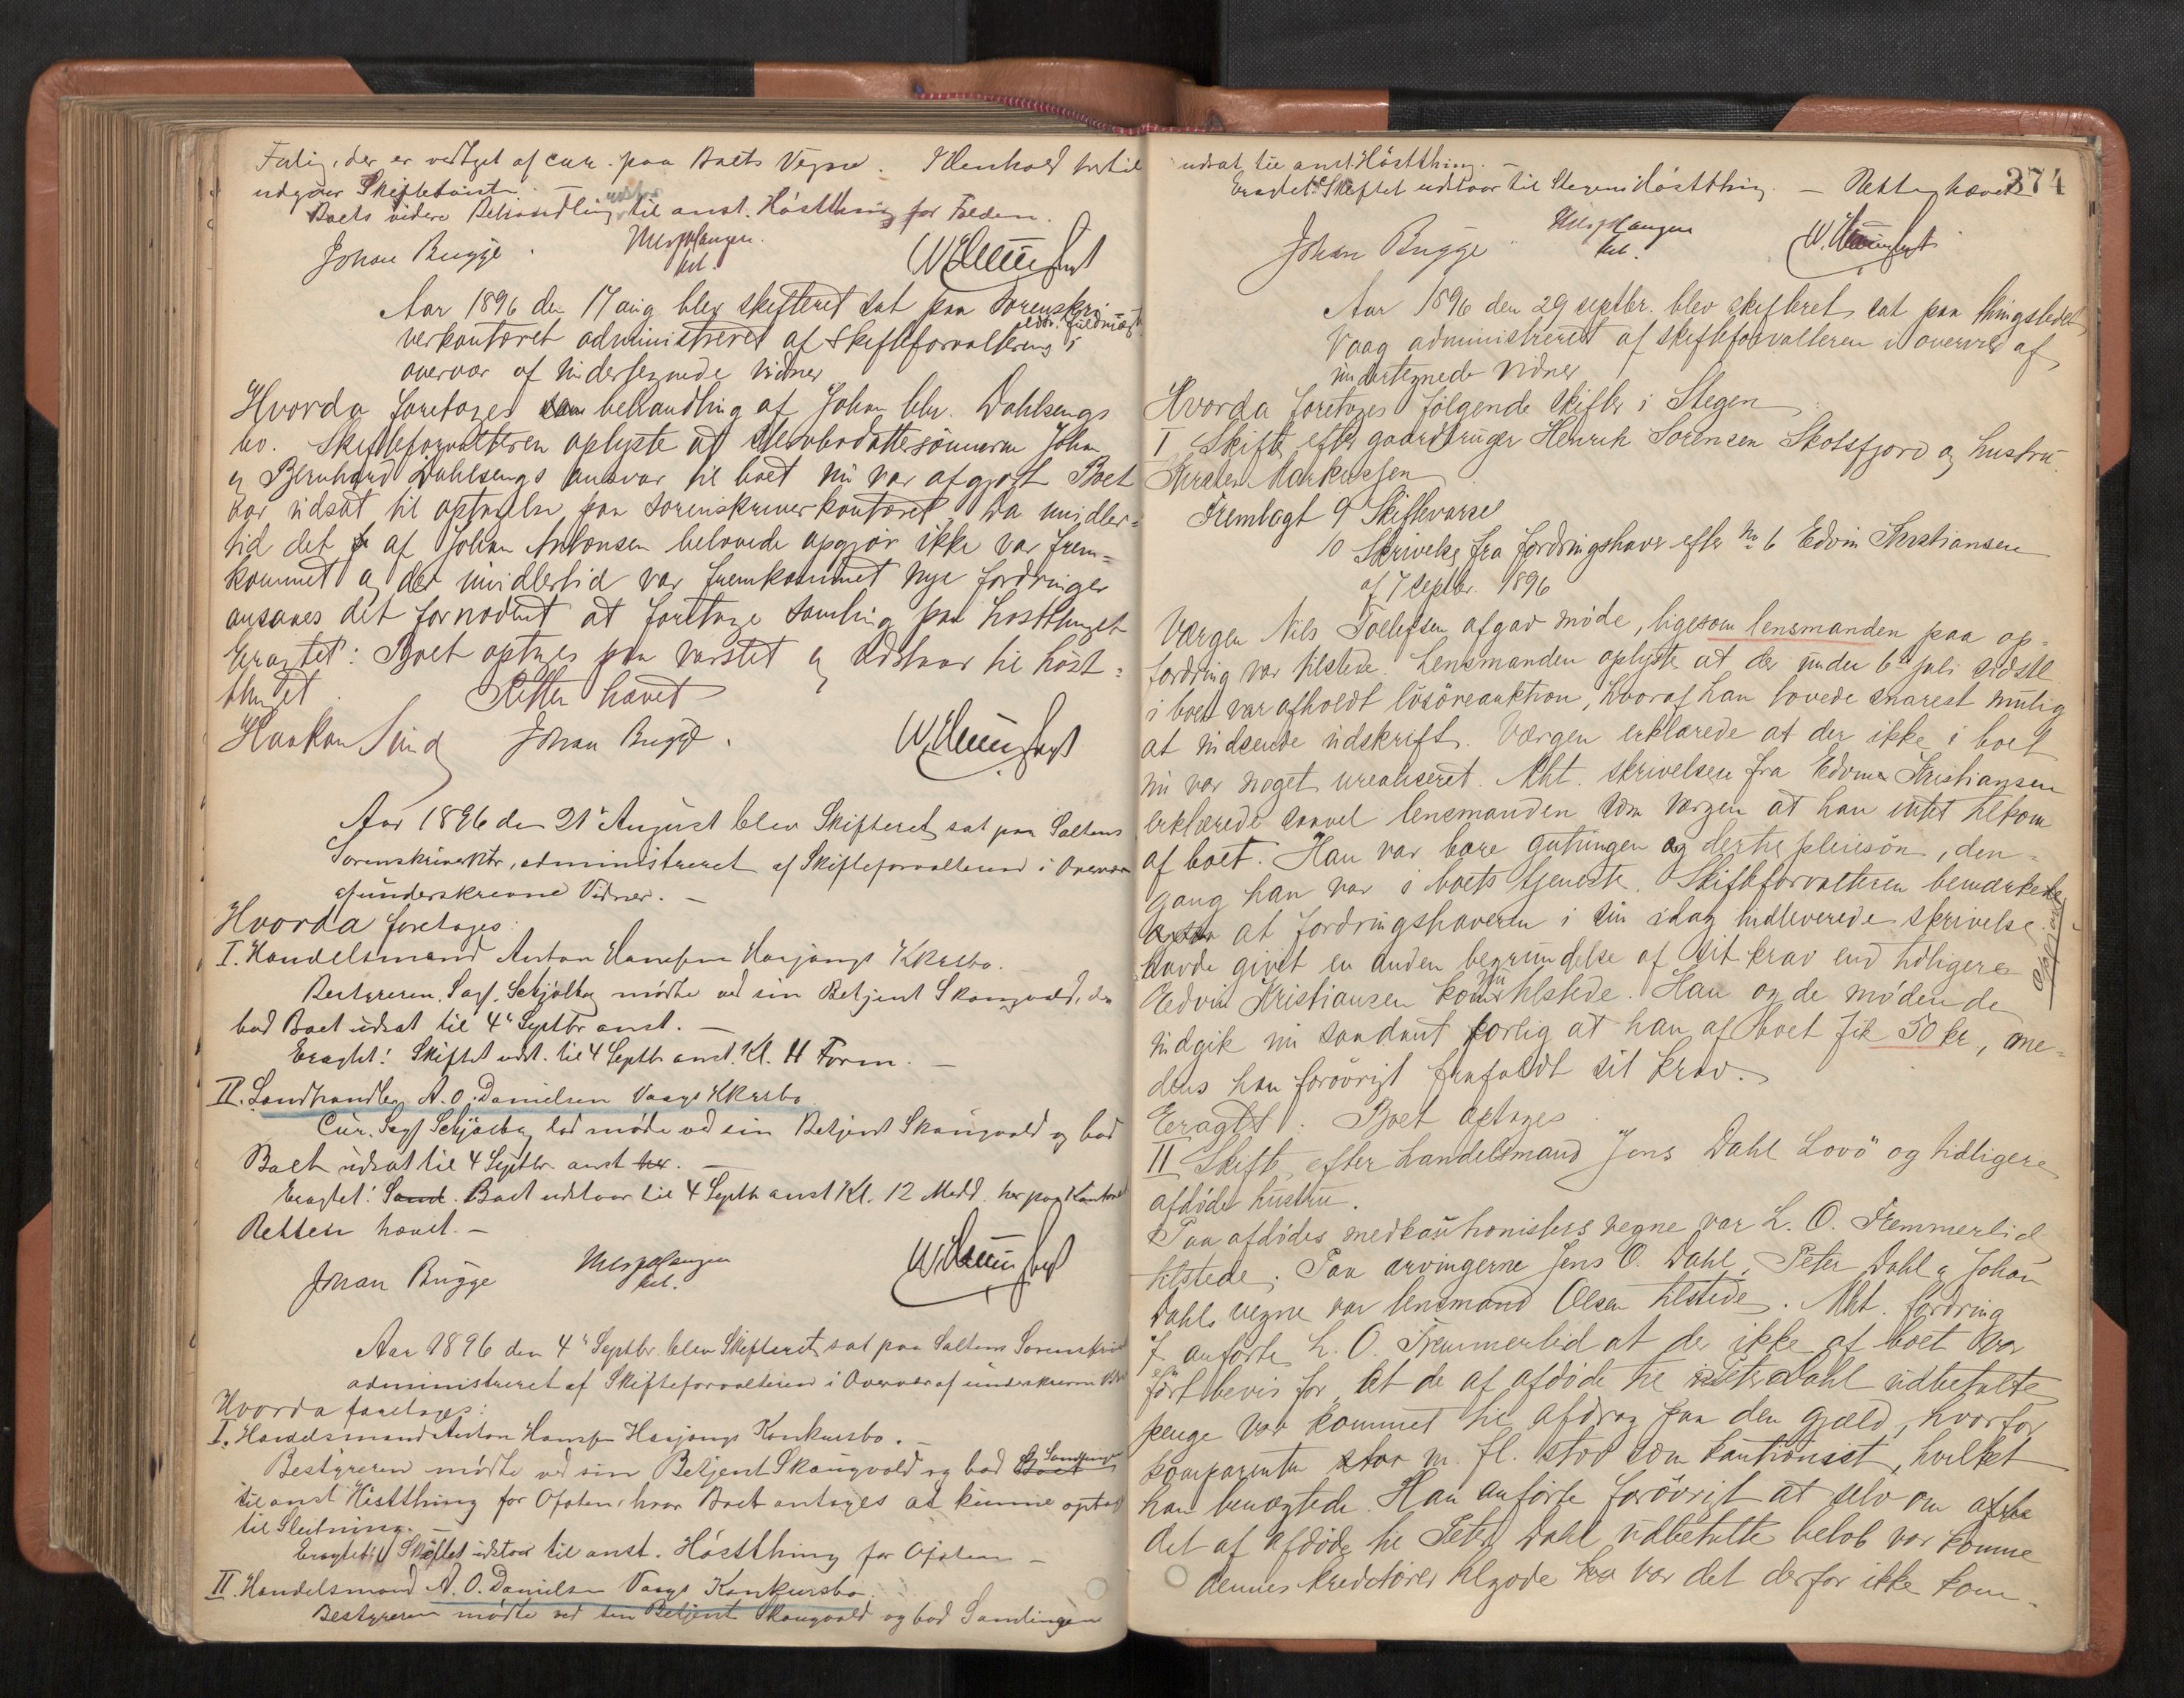 Forlig, der er vedtaget af cur. paa Boets Vegne. I Henhold hertil
udgaar Skiftets
Boets videre Behandling udstaar til anst. Høstthing for Folden.
Johan Bugge.
Aar 1896 den 17 aug blev skifteret sat paa Sorenskri-
verkontoret administreret af Skifteforvalterens edsv. fuldmægt. i
overvær af undertegnede vidner
Hvorda foretages behandling af Johan Chr. Dahlsengs
bo. Skifteforvalteren oplyste at stervbodattersønnerne Johan
og Bernhard Dahlsengs ansvar til boet nu var afgjort. Boet
var udsat til optagelse paa sorenskriverkontoret. Da imidler=
tid det af Johan Antonsen belovede opgjør ikke var frem=
kommet og der imidlertid var fremkommet nye fordringer
ansaaes det fornødent at foretage samling paa høstthinget
Eragtet: Boet optages paa varslet og udstaar til høst=
thinget. Retten hævet
Haakon Sund Johan Bugge.
Aar 1896 den 21de August blev Skifteret sat paa Saltens
Sorenskriverktr, administreret af Skifteforvalteren i Overvær
af underskrevne Vidner. —
Hvorda foretages:
I. Handelsmand Anton Hansen Haajangs Kkrsbo.
Bestyreren, Sagf. Schjølberg mødte ved sin Betjent Skaugvold, der
bad Boet udsat til 4de Septbr anst. —
Eragtet: Skiftet udst. til 4 Septb anst. Kl. 11 Form. —
II. Landhandler A. O. Danielsen Vaags Kkrsbo
Cur. Sagf Schjølberg lod møde ved sin Betjent Skaugvold og bad
Boet udsat til 4 Septbr anst her. —
Eragtet: Samd. Boet udstaar til 4 Septb anst Kl. 12 Midd. her paa Kontoret
Retten hævet. —
Johan Bugge
Aar 1896 den 4de Septbr. blev Skifteret sat paa Saltens Sorenskriv
administreret af Skifteforvalteren i Overvær af underskrevne
Hvorda foretages:
I. Handelsmand Anton Hansen Haajangs Konkursbo. —
Bestyreren mødte ved sin Betjent Skaugvold og bad Boet Samlingen
til anst Høstthing for Ofoten, hvor Boet antages at kunne optages
til Slutning. —
Eragtet: Skiftet udstaar til anst. Høstthing for Ofoten —
II. Handelsmand A. O. Danielsen Vaags Konkursbo.
Bestyreren mødte ved sin Betjent Skaugvold og bad Samlingen
374
udsat til anst Høstthing. —
Eragtet: Skiftet udstaar til Stegens Høstthing. — Retten hævet
Johan Bugge
Aar 1896 den 29 septbr. blev skifteret sat paa thingstedet
Vaag administreret af skifteforvalteren i overvær af
undertegnede vidner
Hvorda foretages følgende skifter i Stegen
I Skifte efter gaardbruger Henrik Sørensen Skotsfjord og hustru
Kirsten Markussen
Fremlagt 9 Skiftevarsel
10 Skrivelse fra fordringshaver efter No 6 Edvin Kristiansen
af 7 septbr. 1896
Værgen Nils Tollefsen afgav møde, ligesom lensmanden paa op=
fordring var tilstede. Lensmanden oplyste at der under 6te juli sidstl.
i boet var afholdt løsøreauktion, hvoraf han lovede snarest mulig
at indsende udskrift. Værgen erklærede at der ikke i boet
nu var noget urealiseret. Aht. skrivelsen fra Edvin Kristiansen
erklærede saavel lensmanden som værgen at han intet tilkom
af boet. Han var bare gutungen og dertil pleiesøn, den=
gang han var i boets tjeneste. Skifteforvalteren bemærkede
at fordringshaveren i sin idag indleverede skrivelse
havde givet en anden begrundelse af sit krav end tidligere
Edvin Kristiansen kom nu tilstede. Han og de mødende
indgik nu saadant forlig at han af boet fik 50 kr, me=
dens han forøvrigt frafaldt sit krav.
Eragtet: Boet optages
II Skifte efter handelsmand Jens Dahl Lovø og tidligere
afdøde hustru.
Paa afdødes medkautionisters vegne var L. O. Fremmerlid
tilstede. Paa arvingerne Jens O. Dahl, Peter Dahl & Johan
Dahls vegne var lensmand Olsen tilstede. Aht. fordring
7 anførte L. O. Fremmerlid at der ikke af boet var
ført bevis for, at de af afdøde til Peter Dahl udbetalte
penge var kommet til afdrag paa den gjæld, hvorfor
komparenten m. fl. stod som kautionist, hvilket
han benægtede. Han anførte forøvrigt at selv om
det af afdøde til Peter Dahl udbetalte beløb var komme
dennes kreditorer tilgode var det derfor ikke kom-